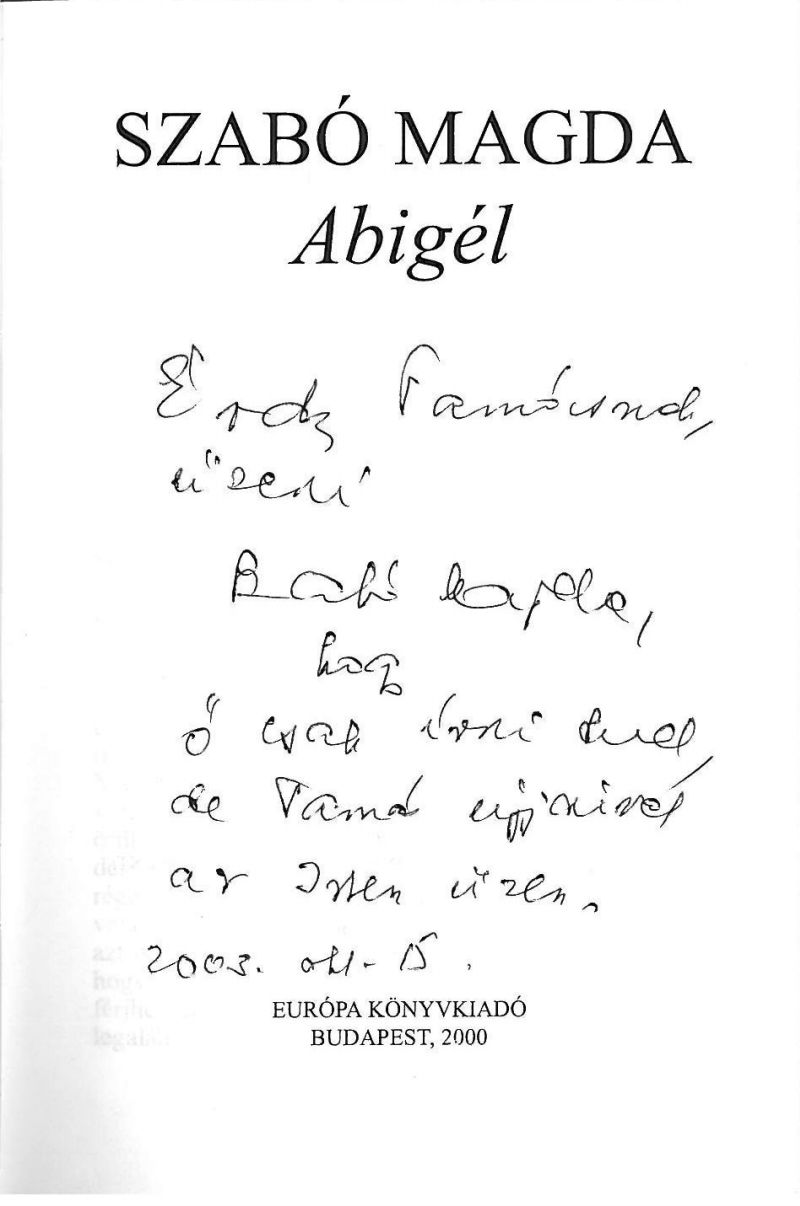 SZABÓ MAGDA
Abigél
Érdi Tamásnak,
üzeni
Szabó Magda,
hogy
ő csak írni tud,
de Tamás ujjaival
az Isten üzen.
2003. okt. 15.
EURÓPA KÖNYVKIADÓ
BUDAPEST, 2000